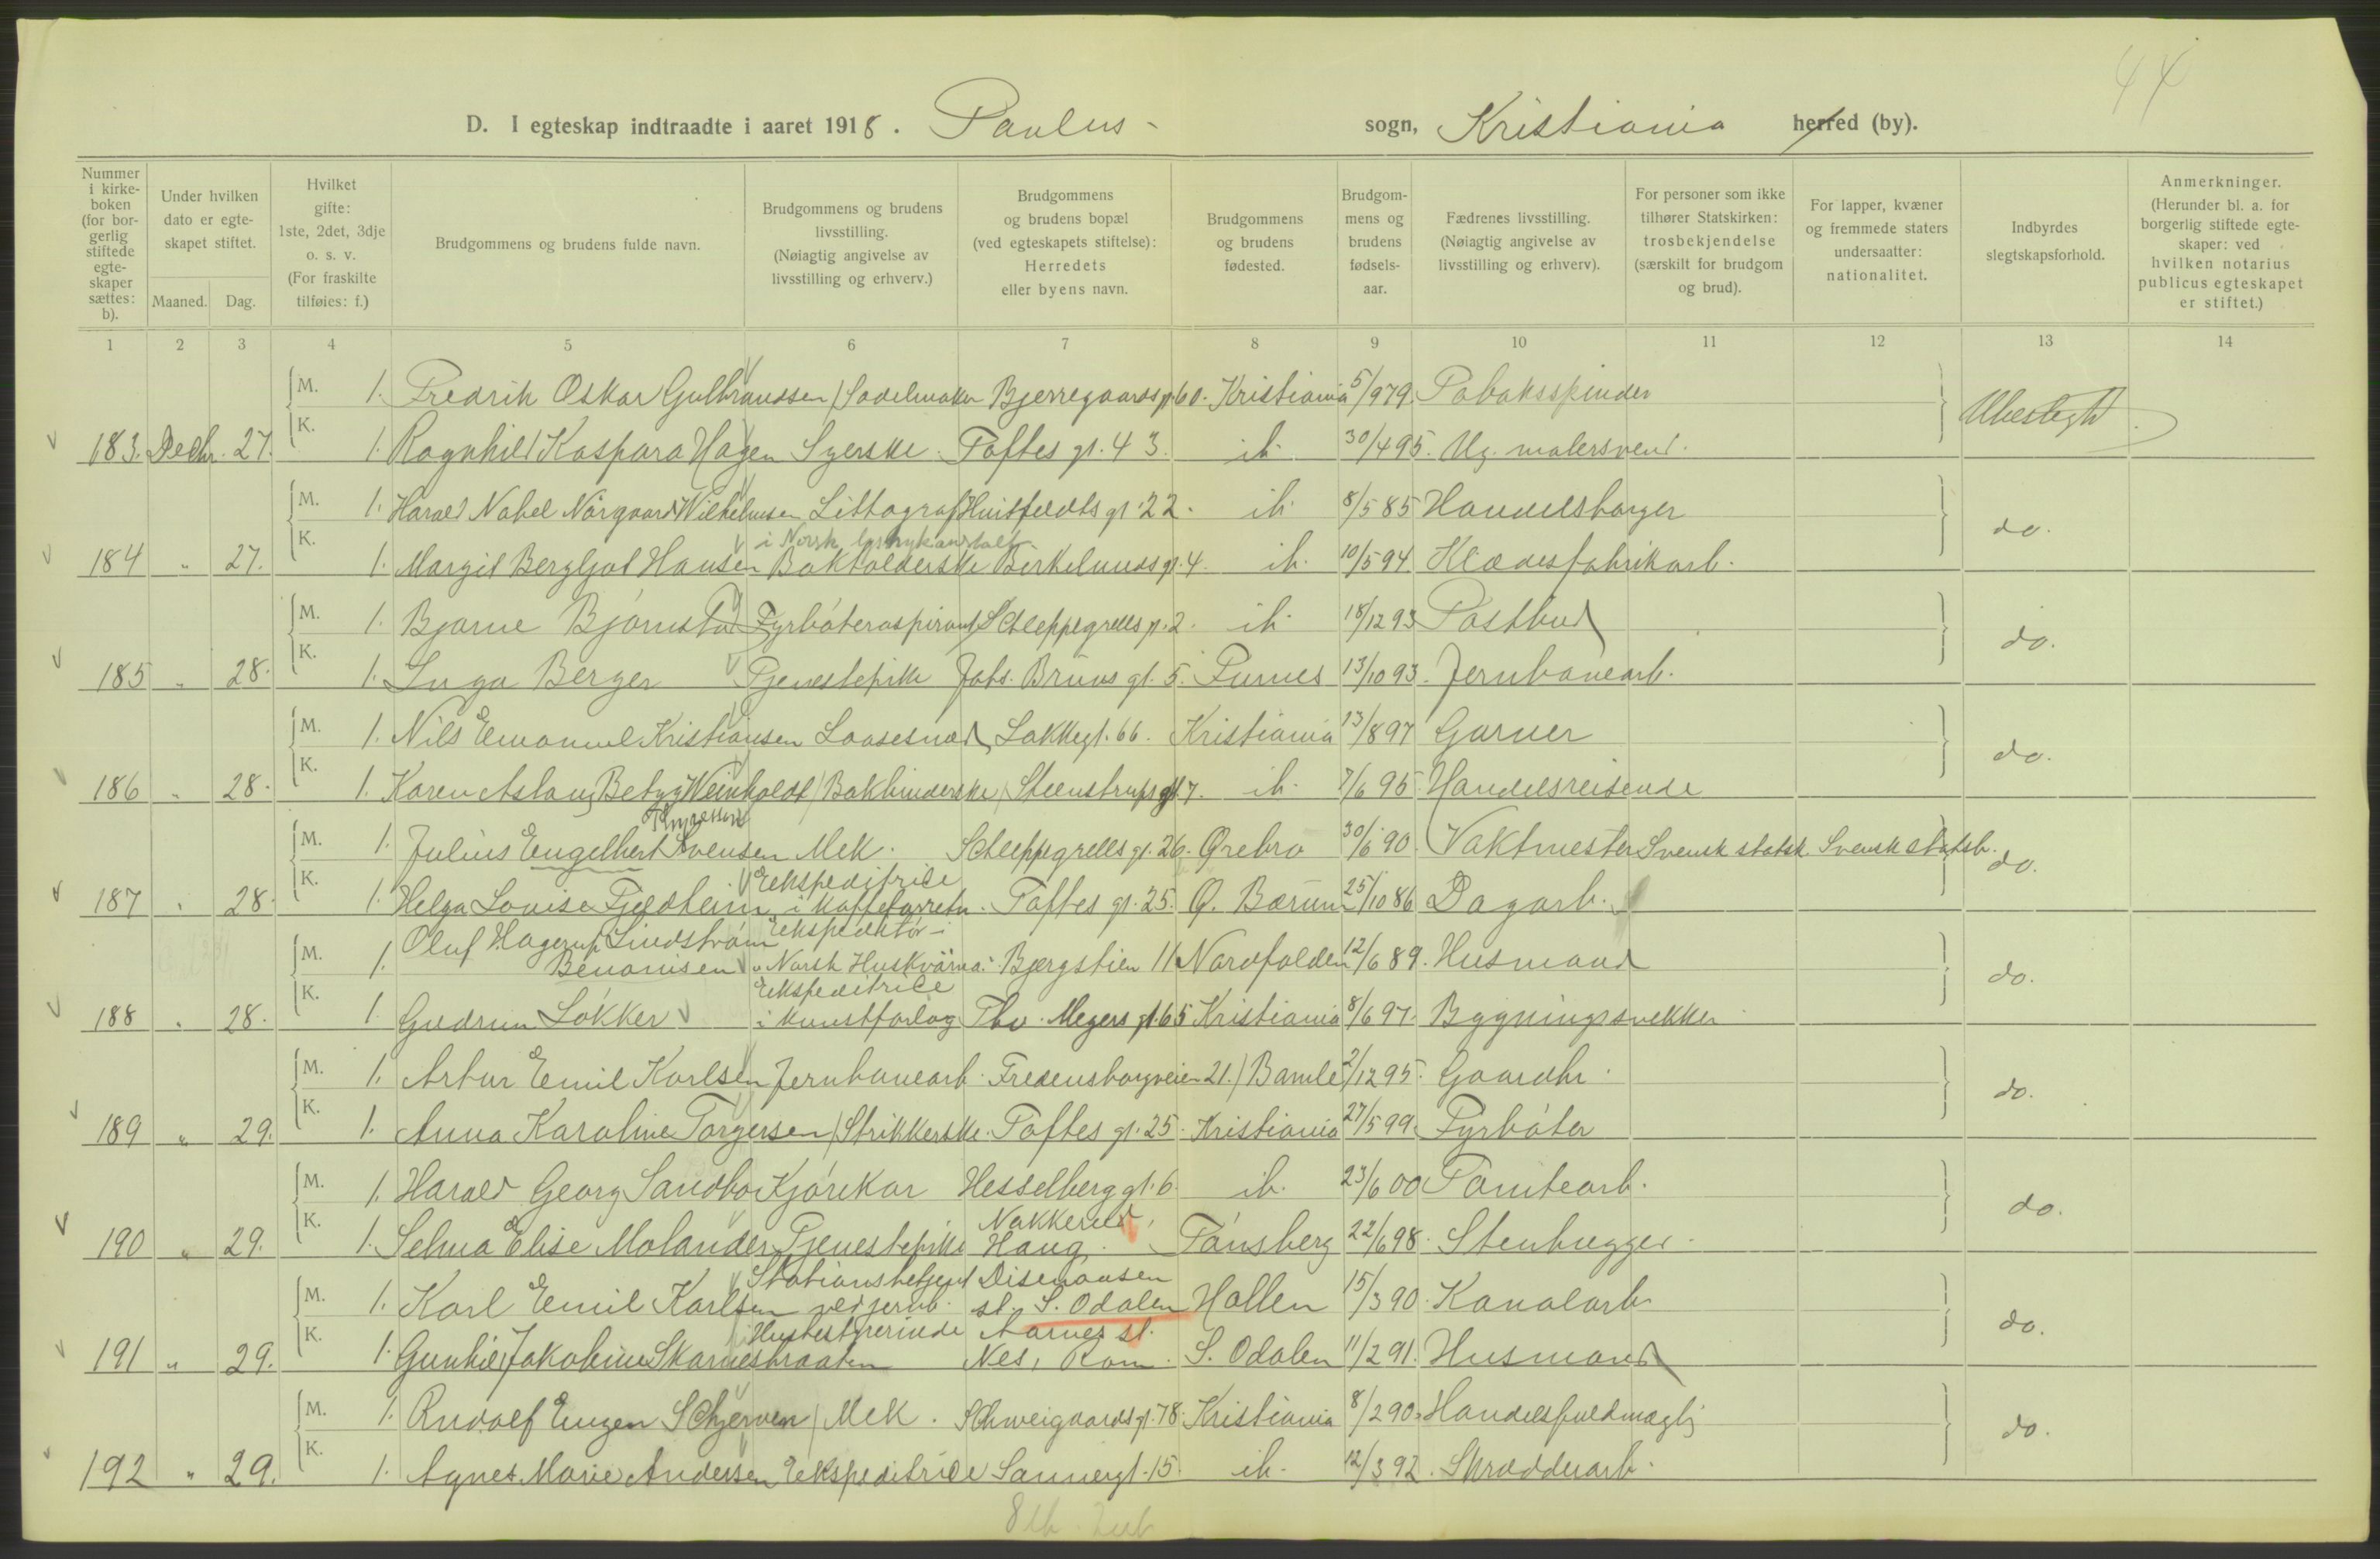 44
D. I egteskap indtraadte i aaret 1918. Paulus - sogn, Kristiania herred (by).
Nummer i kirke-boken (for bor-gerlig stiftede egte-skaper sættes: b).
Under hvilken dato er egte-skapet stiftet.
Maaned. Dag.
Hvilket gifte: 1ste, 2det, 3dje o. s. v. (For fraskilte tilføies: f.)
Brudgommens og brudens fulde navn.
Brudgommens og brudens livsstilling. (Nøiagtig angivelse av livsstilling og erhverv.)
Brudgommens og brudens bopæl (ved egteskapets stiftelse): Herredets eller byens navn.
Brudgommens og brudens fødested.
Brudgom-mens og brudens fødsels-aar.
Fædrenes livsstilling. (Nøiagtig angivelse av livsstilling og erhverv).
For personer som ikke tilhører Statskirken: trosbekjendelse (særskilt for brudgom og brud).
For lapper, kvæner og fremmede staters undersaatter: nationalitet.
Indbyrdes slegtskapsforhold.
Anmerkninger. (Herunder bl. a. for borgerlig stiftede egte-skaper: ved hvilken notarius publicus egteskapet er stiftet.)
1 2 3 4 5 6 7 8 9 10 11 12 13 14
M. 1. Fredrik Oskar Gulbrandsen Sadelmaker Bjerregaardsgt. 60. Kristiania 5/9 79 Tobaksspinder Ubeslegtet
183. Decbr. 27. K. 1. Ragnhild Kaspara Hagen Syerske Toftes gt. 43. ib. 30/4 95. Ug. malersvend.
M. 1. Harald Nobel Nörgaard Wilhelmsen Littograf Huitfeldts gt. 22. ib. 8/5 85 Handelsborger do.
i Norsk
184 " 27. K. 1. Margit Bergljot Hansen Bokholderske Birkelunds gt. 4. ib. 10/5 94 Klædesfabrikarb.
M. 1. Bjarne Björnstad Fyrböteraspirant Schleppegrells gt. 2. ib. 18/12 93 Postbud do.
185 " 28. K. 1. Inga Berger Tjenestepike Johs. Bruns gt. 5. Furnes 13/10 93. Jernbanearb.
M. 1. Nils Emanuel Kristiansen Laasesmed, Lakkegt. 66. Kristiania 13/8 97 Garver do.
186 " 28. K. 1. Karen Aslaug Betzy Weinholdt Bokbinderske Steenstrups gt. 7. ib. 7/6 95 Handelsreisende
M. 1. Julius Engelbert Svensen Mek. Schleppegrells gt. 26. Ørebro 30/6 90. Vaktmester Svensk statsk. Svensk statsb. do.
Ekspeditrice
187 " 28. K. 1. Helga Louise Fjeldheim i kaffeforretn. Toftes gt. 25. Ø. Bærum 25/10 86 Dagarb.
Oluf Hagerup Lindström Ekspeditör i
M. 1. Benonisen "Norsk Huskvarna". Bjergstien 11 Nordfolden 12/6 89. Husmand do.
Ekspeditrice
188 " 28. K. 1. Gudrun Løkker i kunstforlag Thv. Meyers gt. 65 Kristiania 8/6 97. Bygningssnekker
M. 1. Artur Emil Karlsen Jernbanearb. Fredensborgveien 21. Bamle 2/12 95. Gaardbr. do.
189 " 29. K. 1. Anna Karoline Torgersen Strikkerske. Toftes gt. 25. Kristiania 27/5 99. Fyrböter
M. 1. Harald Georg Sandbo Kjörekar Hesselberg gt. 6. ib. 23/6 00 Tomtearb. do.
Nakkerud,
190 " 29. K. 1. Selma Elise Molander Tjenestepike Haug. Tönsberg 22/6 98. Stenhugger.
Stationsbetjent Disenaaen
M. 1. Karl Emil Karlsen ved jernb. st. S. Odalen Hollen 15/3 90. Kanalarb. do.
Husbestyrerinde Aarnes st.
191 " 29. K. 1. Gunhild Jakobine Skarnesbraaten Nes, Rom. S. Odalen 11/2 91. Husmand
M. 1. Rudolf Eugen Schjerven Mek. Schweigaards gt. 78. Kristiania 8/2 90. Handelsfuldmægtig do.
192 " 29. K. 1. Agnes Marie Andersen Ekspeditrice Sannergt. 15. ib. 12/3 92. Skrædderarb.